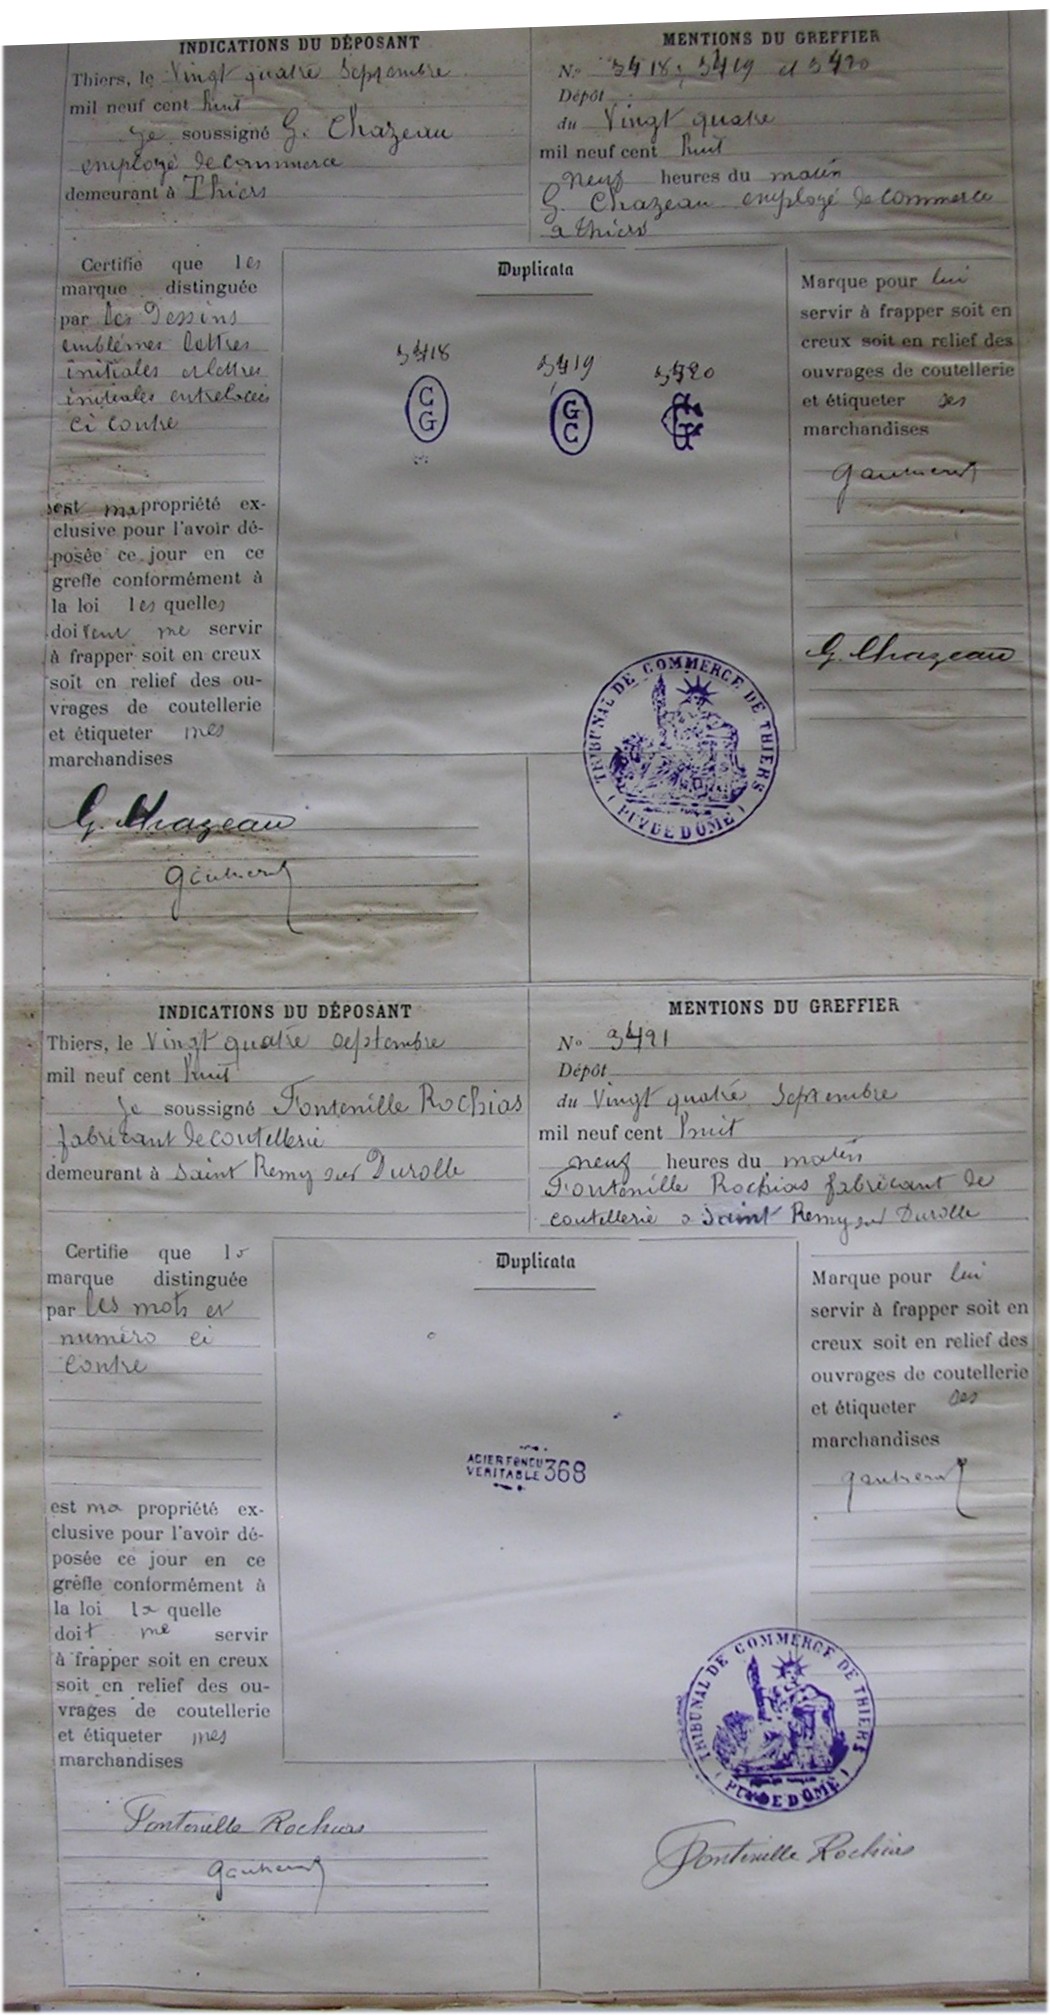 INDICATIONS DU DÉPOSANT
Thiers, le Vingt quatre Septembre
mil neuf cent huit
Je soussigné G. Chazeau
employé de commerce
demeurant à Thiers
MENTIONS DU GREFFIER
No 3418, 3419 et 3420
Dépôt
du Vingt quatre
mil neuf cent huit
neuf heures du matin
G. Chazeau employé de commerce
a Thiers
Certifie que les
marque distinguée
par les Dessins
emblémes lettres
initiales et lettres
initiales entrelacées
ci contre
est ma propriété ex-
clusive pour l'avoir dé-
posée ce jour en ce
greffe conformément à
la loi les quelles
doivent me servir
à frapper soit en creux
soit en relief des ou-
vrages de coutellerie
et étiqueter mes
marchandises
G. Chazeau
Duplicata
3418
3419
3420
C
G
G
C
GC
Marque pour lui
servir à frapper soit en
creux soit en relief des
ouvrages de coutellerie
et étiqueter ses
marchandises
G. Chazeau
TRIBUNAL DE COMMERCE DE THIERS
(PUY DE DÔME)
INDICATIONS DU DÉPOSANT
Thiers, le Vingt quatre septembre
mil neuf cent huit
Je soussigné Fontenille Rochias
fabricant de coutellerie
demeurant à Saint Remy sur Durolle
MENTIONS DU GREFFIER
No 3421
Dépôt
du Vingt quatre Septembre
mil neuf cent huit
neuf heures du matin
Fontenille Rochias fabricant de
coutellerie a Saint Remy sur Durolle
Certifie que la
marque distinguée
par les mots et
numéro ci
contre
est ma propriété ex-
clusive pour l'avoir dé-
posée ce jour en ce
greffe conformément à
la loi la quelle
doit me servir
à frapper soit en creux
soit en relief des ou-
vrages de coutellerie
et étiqueter mes
marchandises
Fontenille Rochias
Duplicata
ACIER FONDU
VERITABLE 368
Marque pour lui
servir à frapper soit en
creux soit en relief des
ouvrages de coutellerie
et étiqueter ses
marchandises
TRIBUNAL DE COMMERCE DE THIERS
(PUY DE DÔME)
Fontenille Rochias